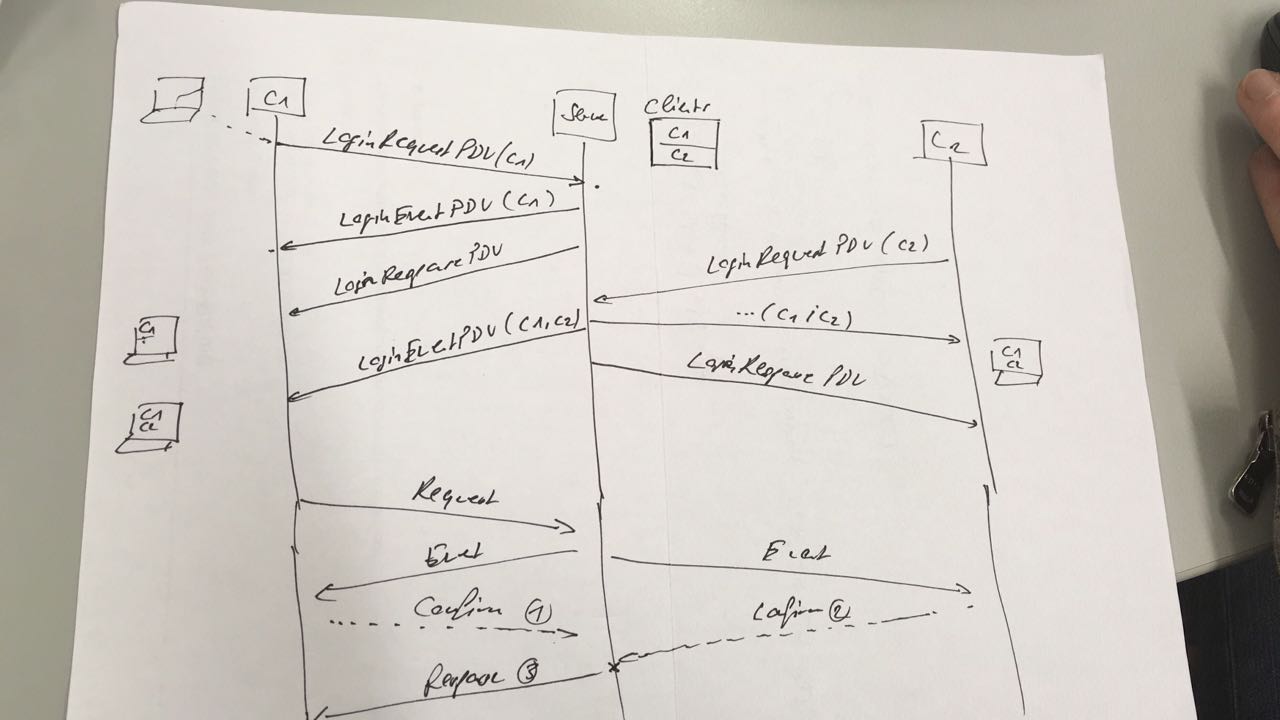 C1
Serve
Clients
C1
C2
C2
LoginRequestPDU(C1)
LoginEventPDU (C1)
LoginRequestPDU (C2)
LoginResponsePDU
...(C1, C2)
LoginEventPDU (C1, C2)
LoginResponse PDU
C1
C1
C2
C1
C2
Request
Event
Event
Confirm ①
Confirm ②
Response ③